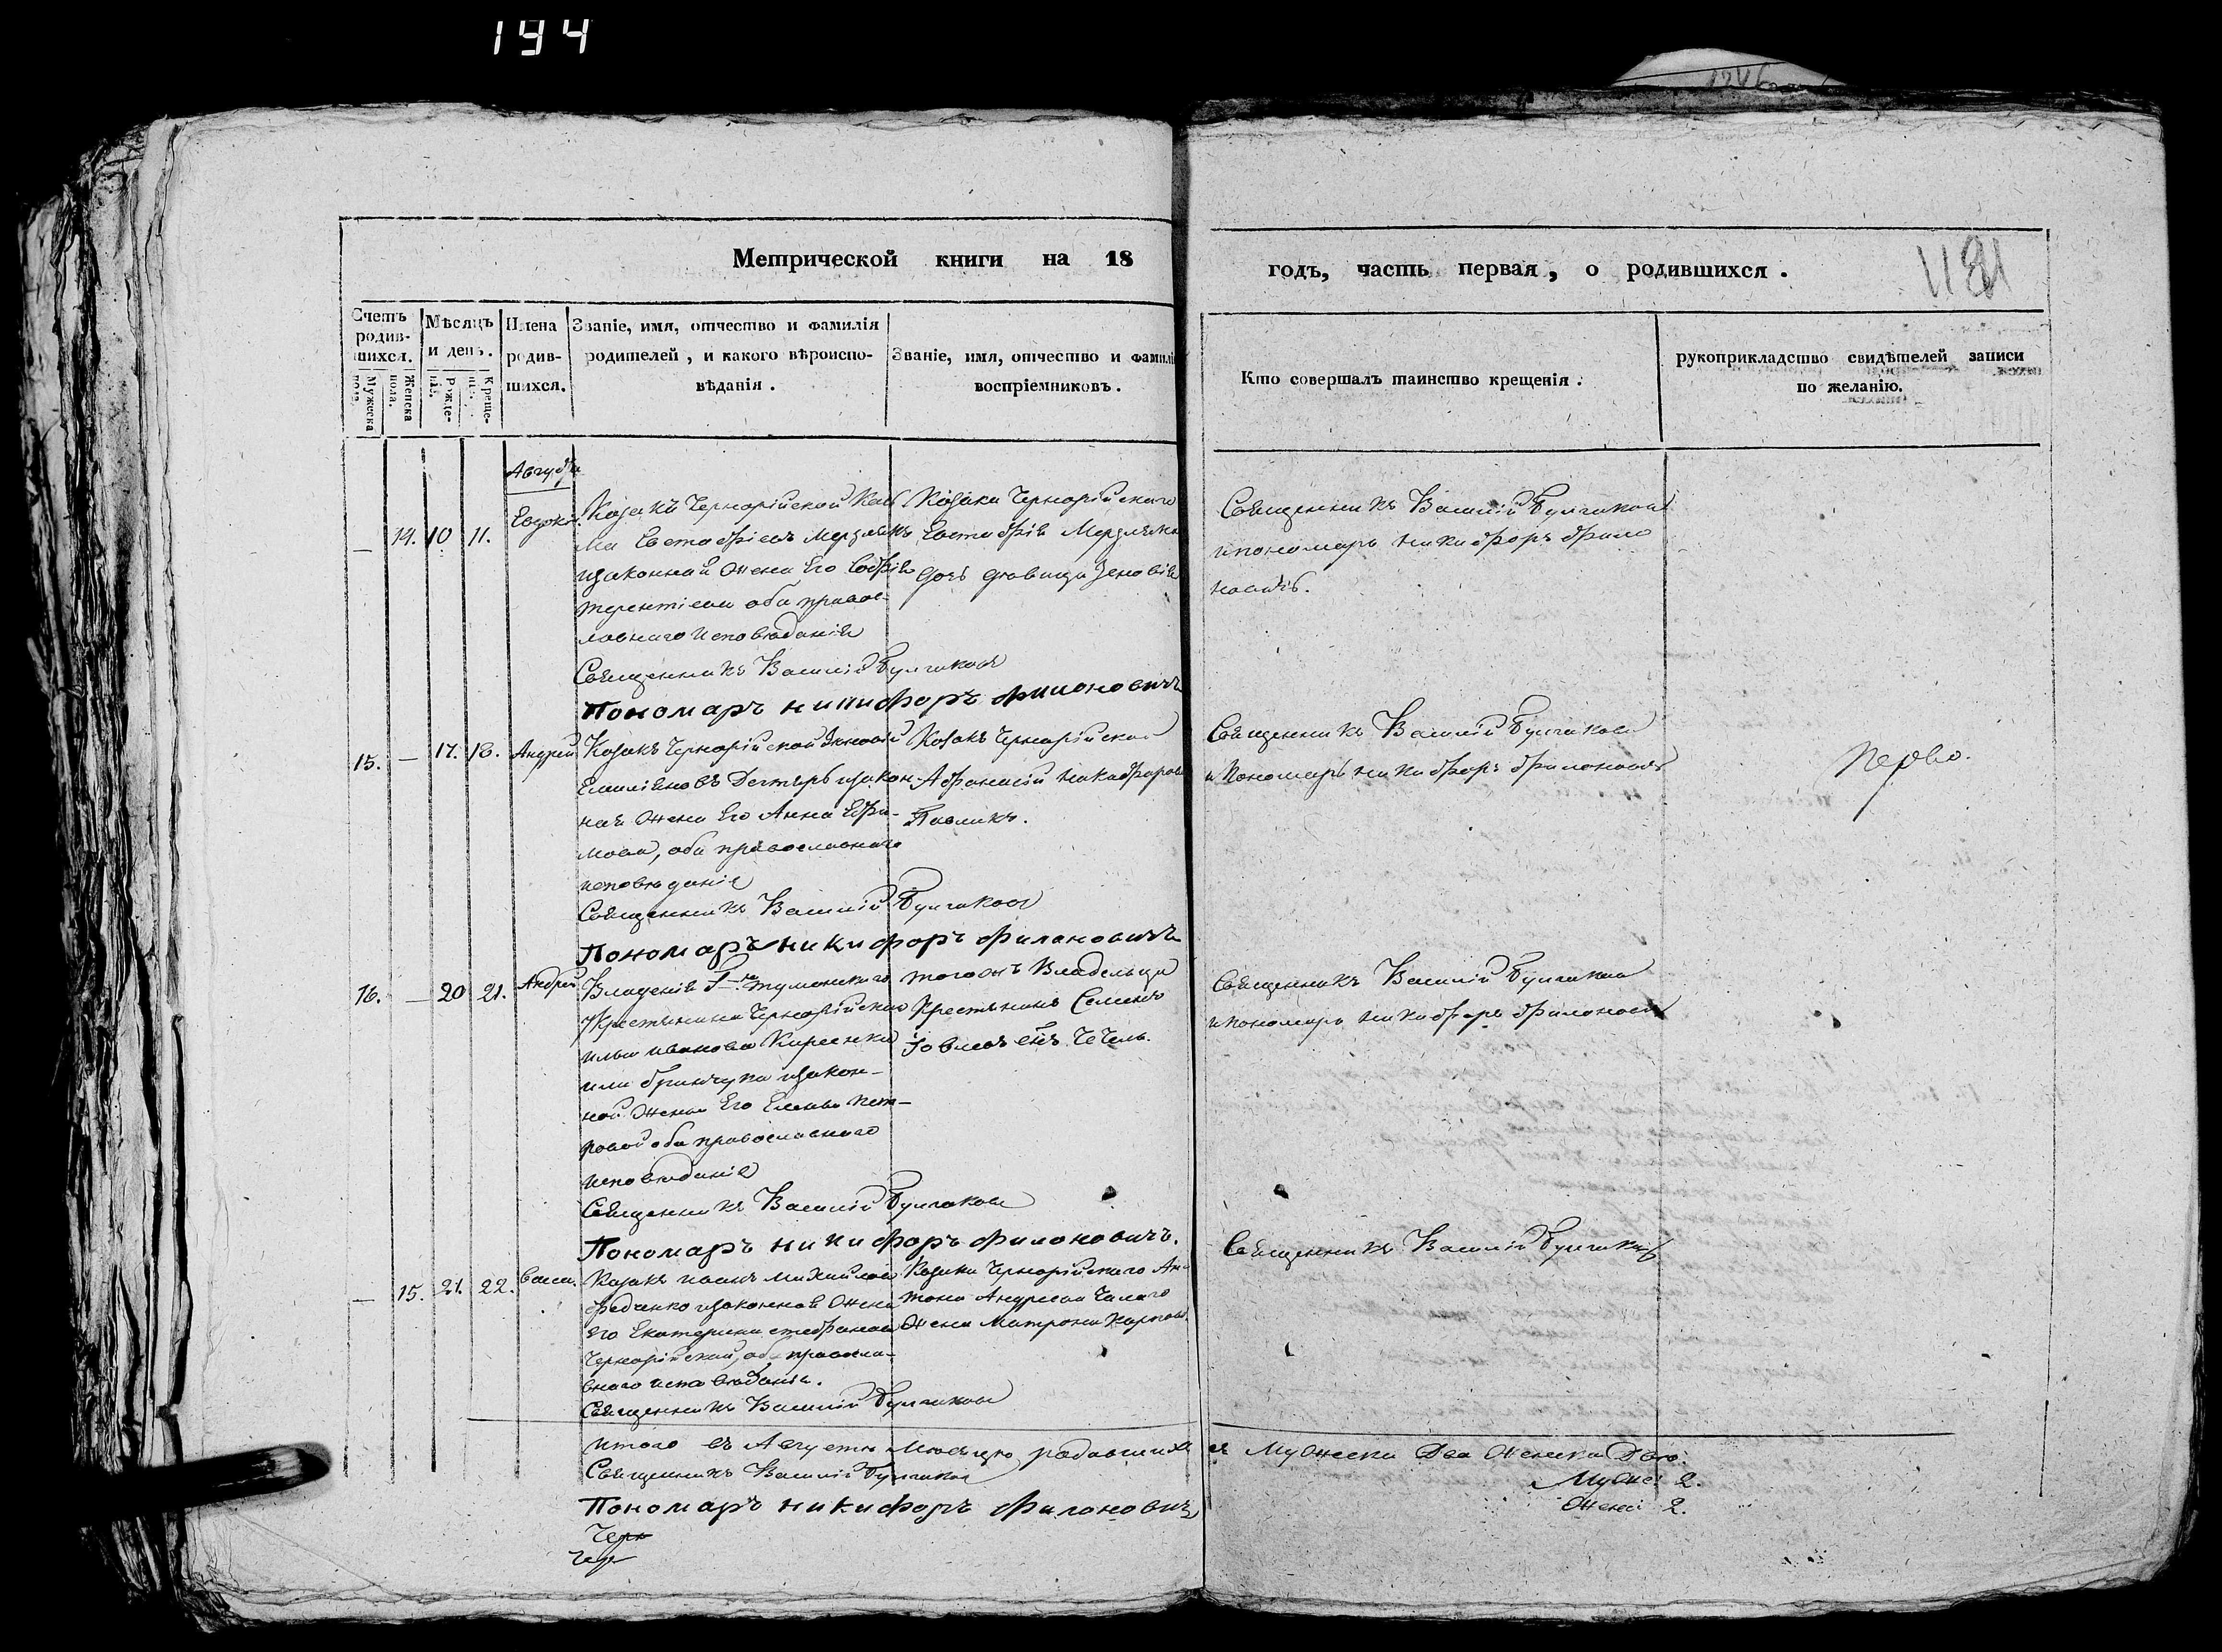 194
Метрической книги на 18
годъ, часть первая, о родившихся.
1181
Счетъ родив-шихся.
Мужеска пола.
Женска пола.
Мѣсяцъ и день.
Рожде-нія.
Креще-нія.
Имена родив-шихся.
Званіе, имя, отчество и фамилія
родителей, и какого вѣроиспо-
вѣданія.
Званіе, имя, отчество и фамилія
воспріемниковъ.
Кто совершалъ таинство крещенія.
рукоприкладство свидѣтелей записи
по желанію.
Августа
— 14. 10 11.
Козакъ Чернорійской
Евстафіевъ
изаконная жена Его Софія
Терентіева оба правос-
лавнаго исповѣданія
Священникъ Василій Булгаковъ
Пономаръ никифоръ филоновичъ
Козака Чернорійскаго
Евстафія
дочь дѣвица Зеновія
Священникъ Василій Булгаковъ
и пономарь никифоръ фило
новичъ.
15. — 17. 18. Андрей
Козакъ Чернорійской
Емиліановъ Дегтярь изакон-
ная жена Его Анна Ефи-
мова, оба православнаго
исповѣданія
Священникъ Василій Булгаковъ
Пономаръ никифоръ филоновичъ
Козакъ Чернорійской
Афанасій никифоровъ
Павликъ.
Священникъ Василій Булгаковъ
и Пономарь никифоръ филоновичъ
16. — 20 21. Андрей
Владенія Г-на Туманскаго
Крестьянина Чернорійскаго
ильи иванова
или Гринчука изакон-
ной жены Его Елены пет-
ровой оба православнаго
исповѣданія
Священникъ Василій Булгаковъ
Пономаръ никифоръ филоновичъ.
того жъ Владельца
Крестьянинъ Семенъ
Іовлевъ сынъ Чечель.
Священникъ Василій Булгаковъ
и пономарь никифоръ филоновичъ
— 15. 21. 22. Васса.
Козакъ иванъ михайловъ
федченко изаконная жена
Его Екатерина стефанова
Чернорійской, оба правосла-
внаго исповѣданія.
Священникъ Василій Булгаковъ
Козака Чернорійскаго Ан-
тона Андреева
жена Матрона Карпова
Священникъ Василій Булгаковъ
Итого въ Августѣ Мѣсяцѣ родившихся Мужеска Два Женска Двѣ
Священникъ Василій Булгаковъ
Мужес: 2.
Женс: 2.
Пономаръ никифоръ филоновичъ
Черн
Чер